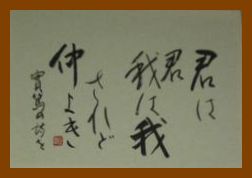 君は
君
我は我
されど
仲よき
實篤の詩を